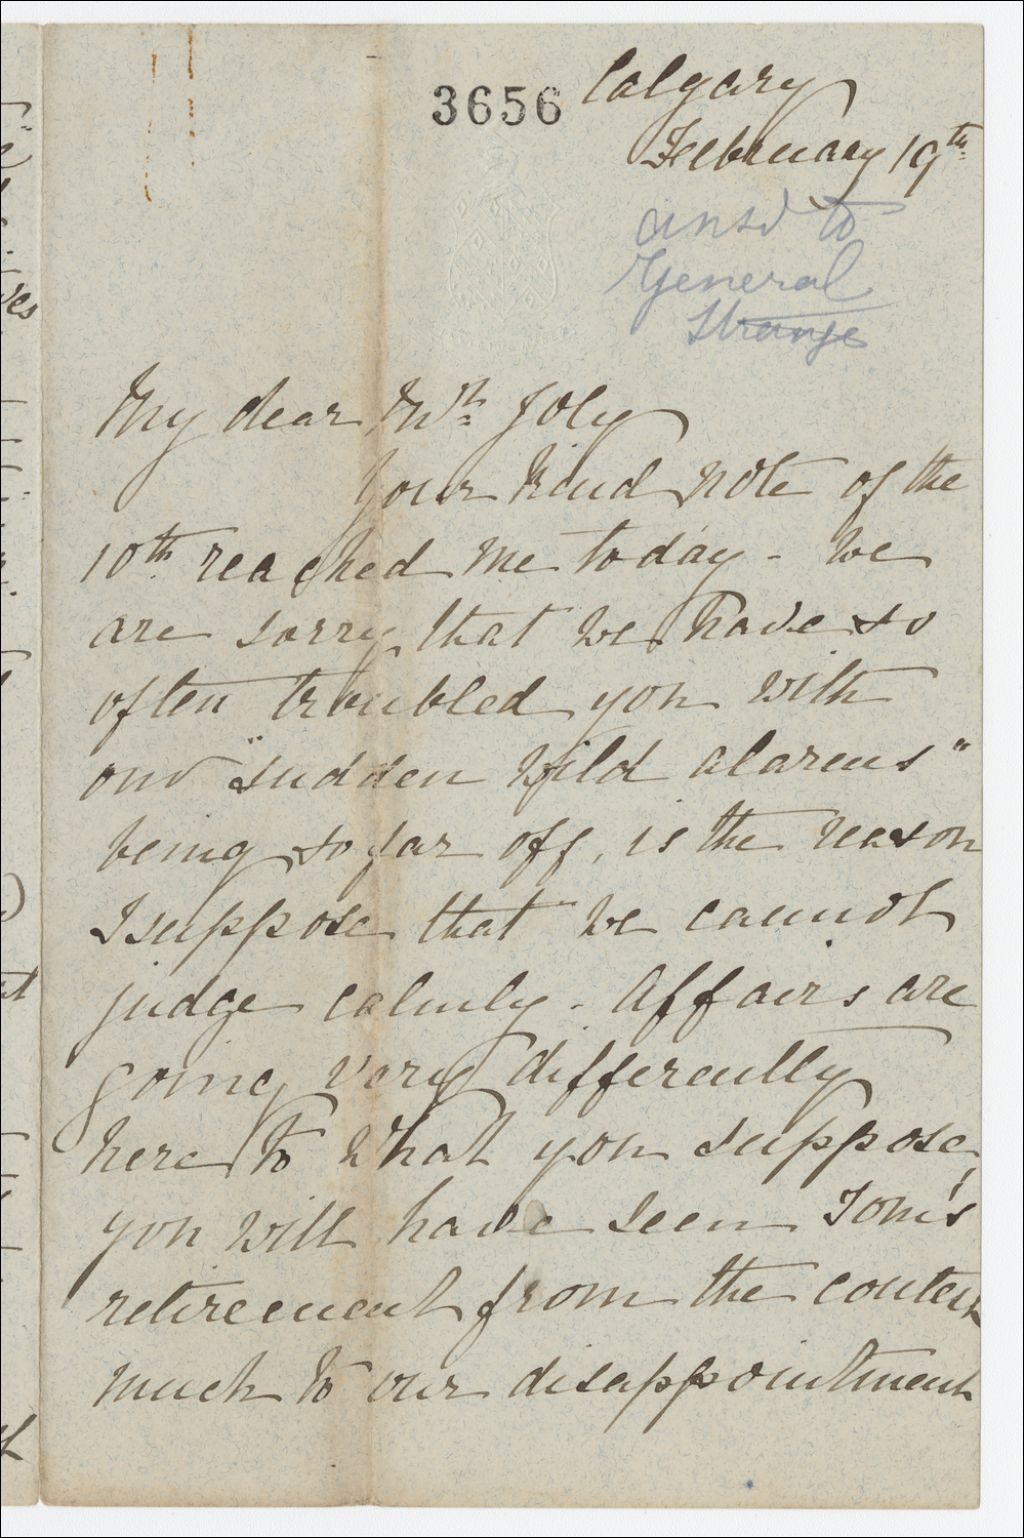 3656
Calgary
February 19th
ansd to
General
Strange
My dear Mr. Joly
Your kind note of the
10th reached me today - We
are sorry that we have so
often troubled you with
our "sudden wild alarms"
being so far off, is the reason
I suppose that we cannot
judge calmly - Affairs are
going very differently
here to what you suppose,
you will have seen Tom's
retirement from the contest
much to our disappointment